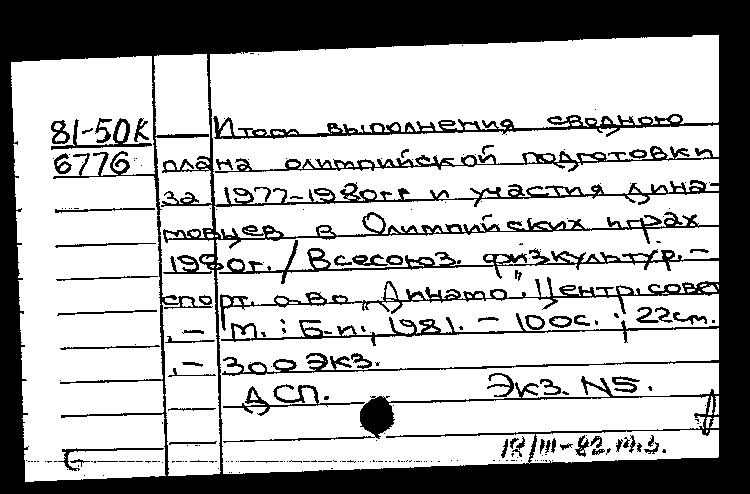 81-50К Итоги выполнения сводного
6776 плана олимпийской подготовки
за 1977-1980гг и участия дина-
мовцев в Олимпийских играх
1980г. / Всесоюз. физкультур.-
спорт. о-во "Динамо". Центр. совет
.- М. : Б.и., 1981. - 100с. ; 22см.
.- 300 экз.
ДСП. Экз. N5.